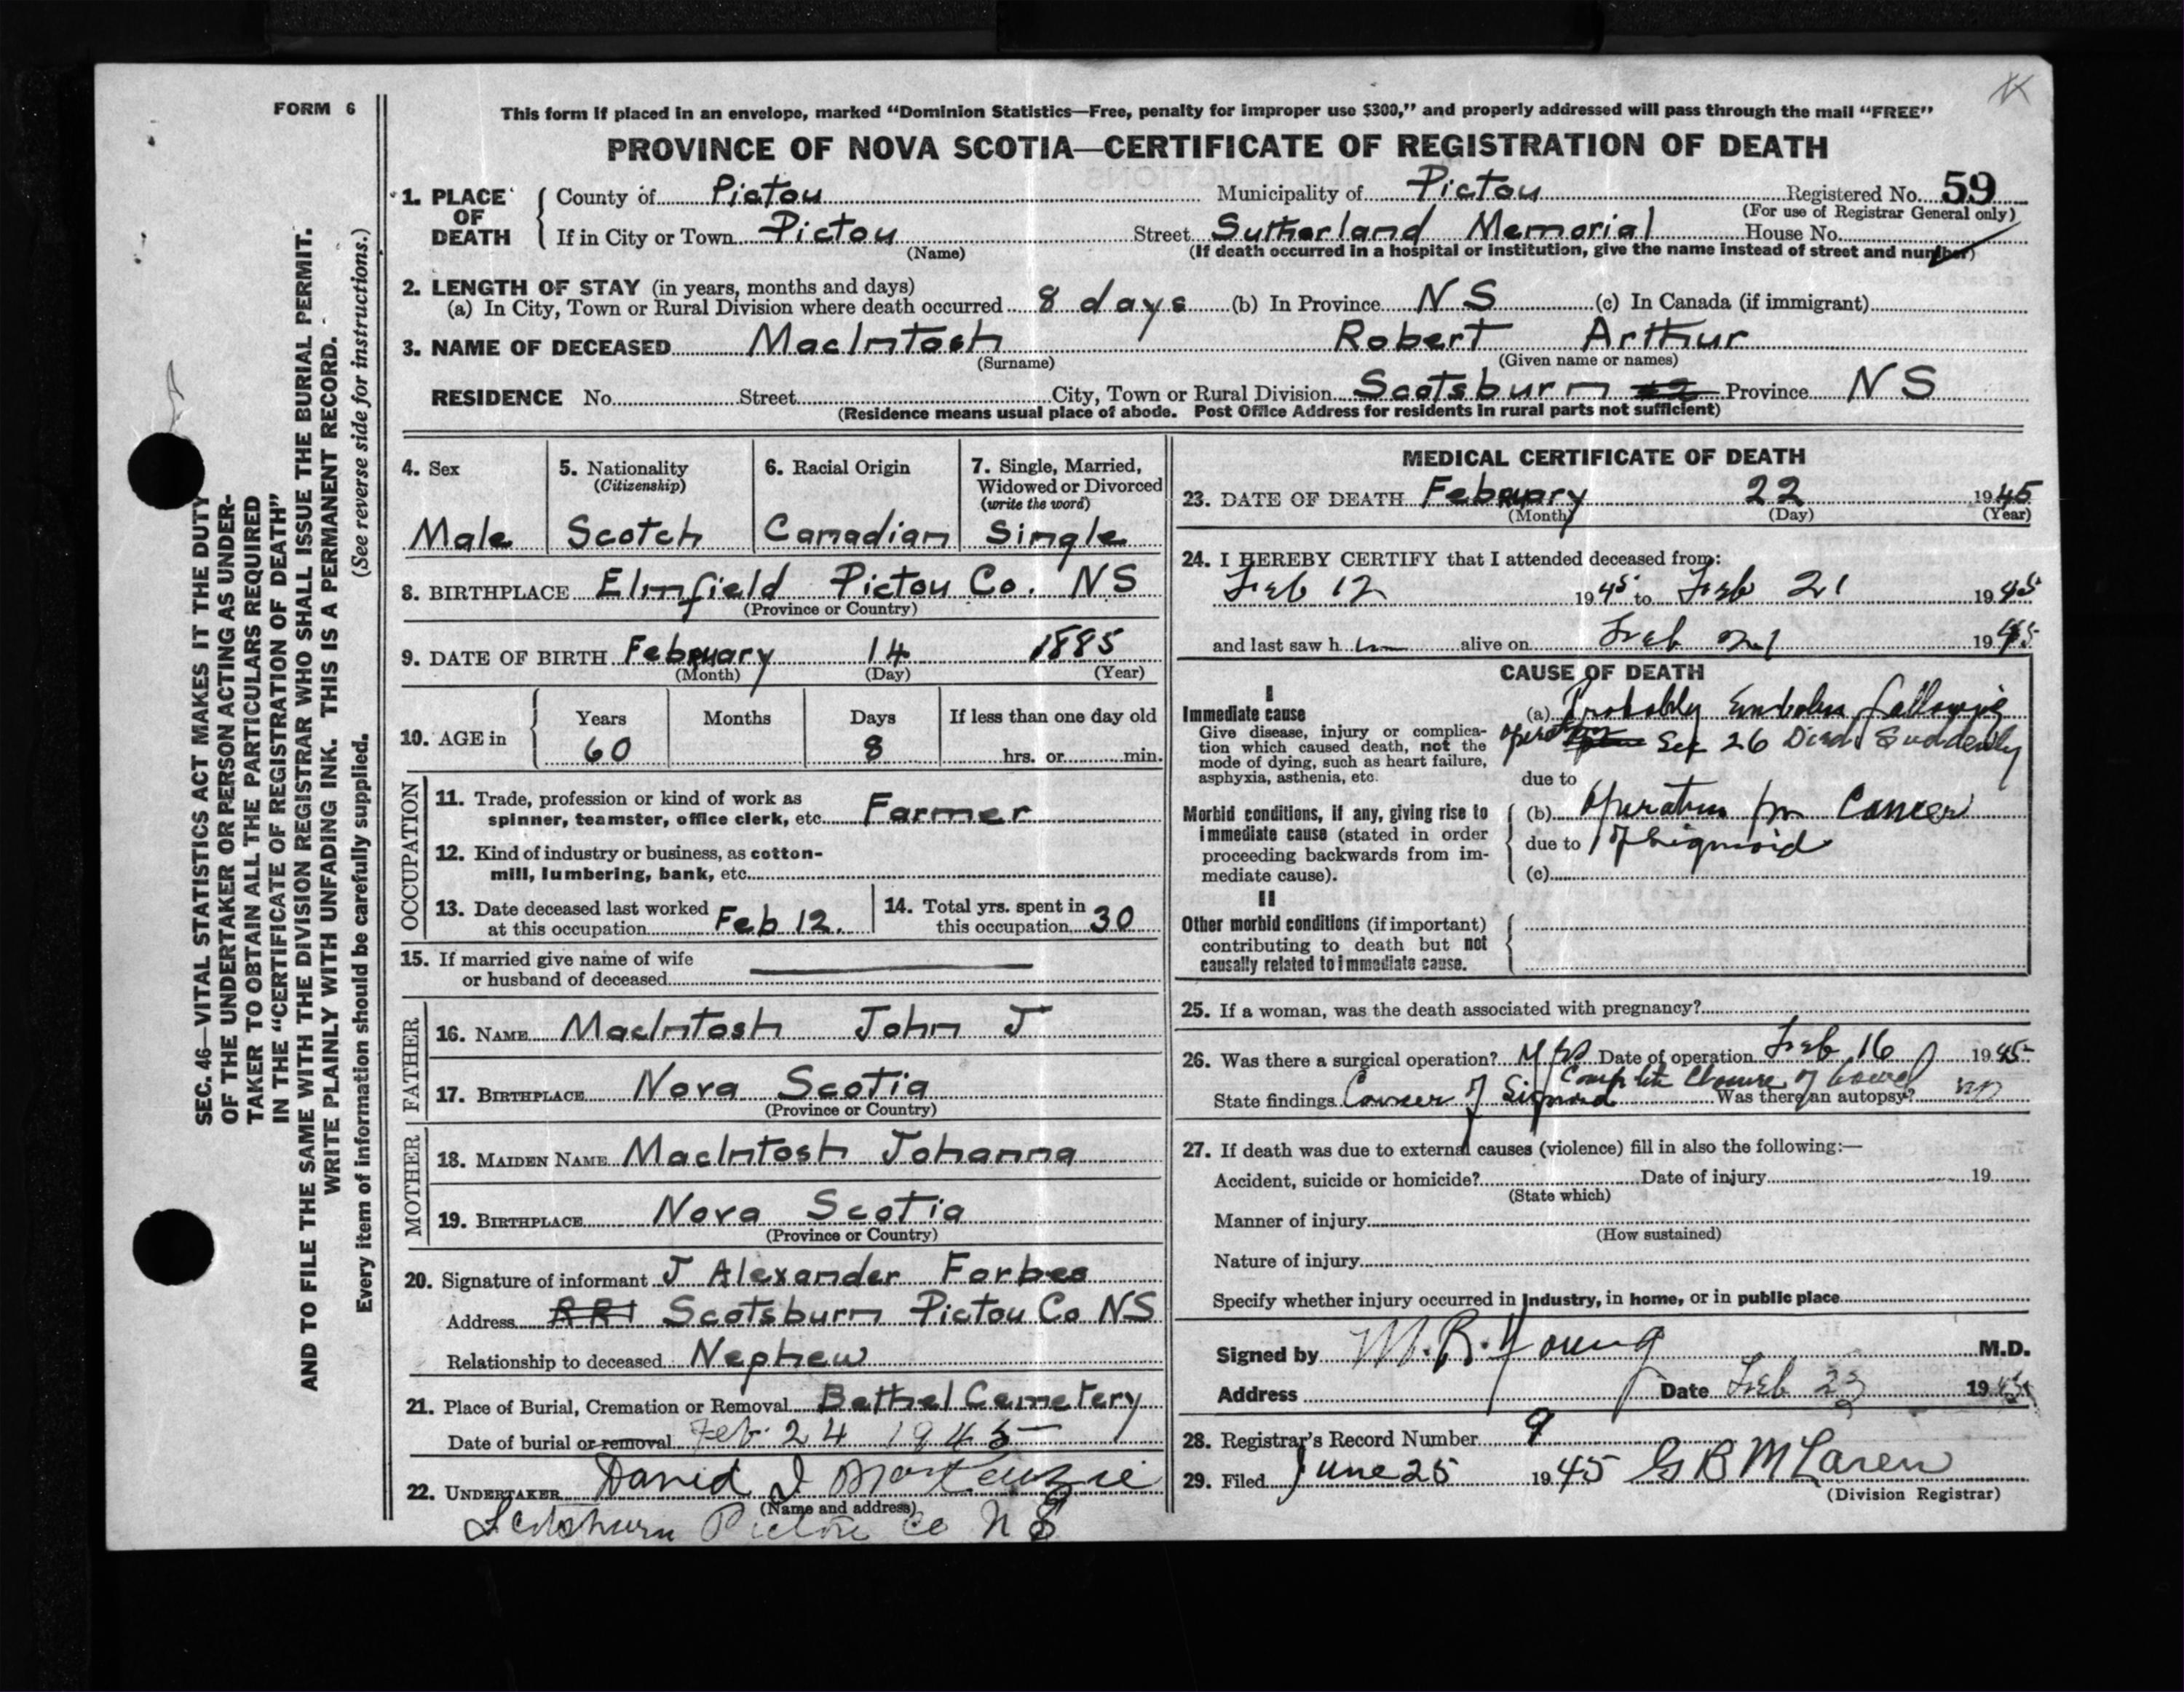 FORM 6
This form if placed in an envelope, marked “Dominion Statistics—Free, penalty for improper use $300,” and properly addressed will pass through the mail “FREE”
PROVINCE OF NOVA SCOTIA—CERTIFICATE OF REGISTRATION OF DEATH
1. PLACE OF DEATH
County of Pictou Municipality of Pictou Registered No. 59
(For use of Registrar General only)
If in City or Town Pictou Street Sutherland Memorial House No.
(Name) (If death occurred in a hospital or institution, give the name instead of street and number)
2. LENGTH OF STAY (in years, months and days)
(a) In City, Town or Rural Division where death occurred 8 days (b) In Province NS (c) In Canada (if immigrant)
3. NAME OF DECEASED MacIntosh Robert Arthur
(Surname) (Given name or names)
RESIDENCE No. Street City, Town or Rural Division Scotsburn #2 Province NS
(Residence means usual place of abode. Post Office Address for residents in rural parts not sufficient)
4. Sex
Male
5. Nationality
(Citizenship)
Scotch
6. Racial Origin
Canadian
7. Single, Married,
Widowed or Divorced
(write the word)
Single
8. BIRTHPLACE Elmfield Pictou Co. NS
(Province or Country)
9. DATE OF BIRTH February 14 1885
(Month) (Day) (Year)
10. AGE in
Years Months Days If less than one day old
60 8 hrs. or min.
OCCUPATION
11. Trade, profession or kind of work as
spinner, teamster, office clerk, etc. Farmer
12. Kind of industry or business, as cotton-
mill, lumbering, bank, etc.
13. Date deceased last worked
at this occupation Feb 12.
14. Total yrs. spent in
this occupation 30
15. If married give name of wife
or husband of deceased
FATHER
16. NAME MacIntosh John J
17. BIRTHPLACE Nova Scotia
(Province or Country)
MOTHER
18. MAIDEN NAME MacIntosh Johanna
19. BIRTHPLACE Nova Scotia
(Province or Country)
20. Signature of informant J Alexander Forbes
Address RR1 Scotsburn Pictou Co NS
Relationship to deceased Nephew
21. Place of Burial, Cremation or Removal Bethel Cemetery
Date of burial or removal Feb. 24 1945
22. UNDERTAKER David J MacKenzie
(Name and address)
Scotsburn Pictou Co N S
MEDICAL CERTIFICATE OF DEATH
23. DATE OF DEATH February 22 1945
(Month) (Day) (Year)
24. I HEREBY CERTIFY that I attended deceased from:
Feb 12 1945 to Feb 21 1945
and last saw him alive on Feb 21 1945
CAUSE OF DEATH
I
Immediate cause
Give disease, injury or complica-
tion which caused death, not the
mode of dying, such as heart failure,
asphyxia, asthenia, etc.
(a) Probably Embolus following
operation Sec 26 Died Suddenly
due to
Morbid conditions, if any, giving rise to
immediate cause (stated in order
proceeding backwards from im-
mediate cause).
(b) Operation for Cancer
due to of Sigmoid
(c)
II
Other morbid conditions (if important)
contributing to death but not
causally related to immediate cause.
25. If a woman, was the death associated with pregnancy?
26. Was there a surgical operation? Yes Date of operation Feb 16 1945
Complete Closure of bowel
State findings Cancer of Sigmoid Was there an autopsy? no
27. If death was due to external causes (violence) fill in also the following:—
Accident, suicide or homicide? Date of injury 19
(State which)
Manner of injury
(How sustained)
Nature of injury
Specify whether injury occurred in Industry, in home, or in public place
Signed by M. R. Young M.D.
Address Date Feb 23 1945
28. Registrar's Record Number 9
29. Filed June 25 1945 G B McLaren
(Division Registrar)
SEC. 46—VITAL STATISTICS ACT MAKES IT THE DUTY
OF THE UNDERTAKER OR PERSON ACTING AS UNDER-
TAKER TO OBTAIN ALL THE PARTICULARS REQUIRED
IN THE “CERTIFICATE OF REGISTRATION OF DEATH”
AND TO FILE THE SAME WITH THE DIVISION REGISTRAR WHO SHALL ISSUE THE BURIAL PERMIT.
WRITE PLAINLY WITH UNFADING INK. THIS IS A PERMANENT RECORD.
Every item of information should be carefully supplied. (See reverse side for instructions.)